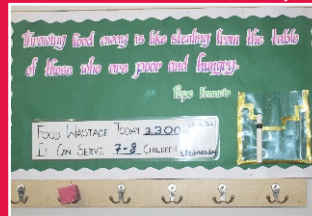 Throwing food away is like stealing from the table
of those who are poor and hungry.
Pope Francis
FOOD WASTAGE TODAY 3300
IT CAN SERVE 7-8 CHILDREN Wednesday